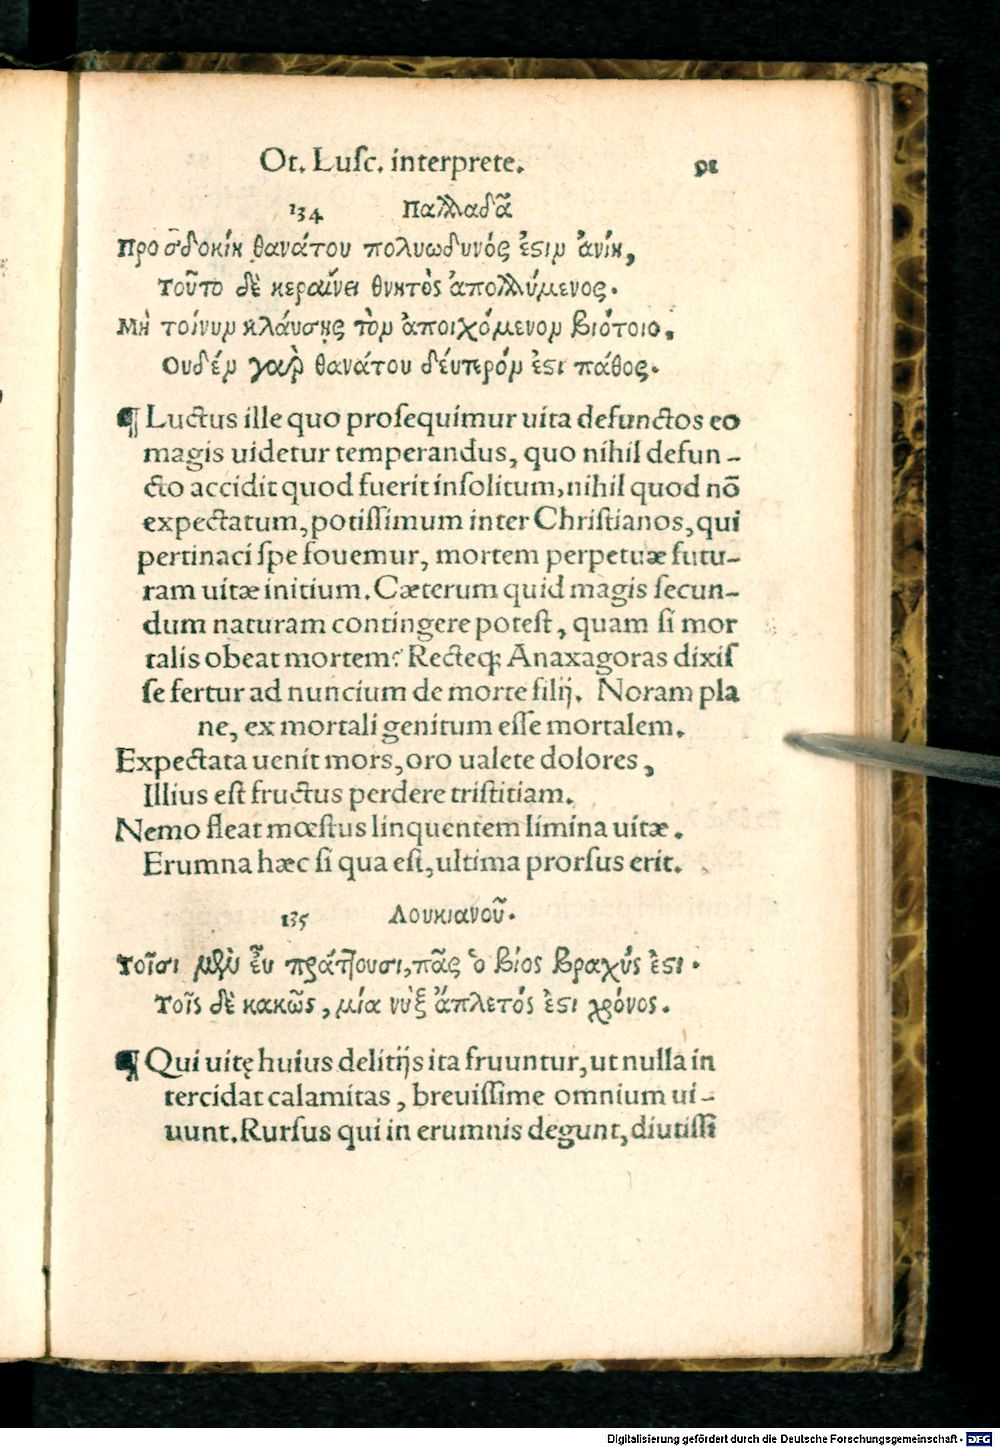 Ot. Luſc. interprete. 91
134 Παλλαδᾶ
Προσδοκίη θανάτου πολυωδυνός ἐστιν ἀνίη,
Τοῦτο δὲ κερδαίνει θνητὸς ἀπολλύμενος.
Μὴ τοίνυν κλάυσῃς τὸν ἀποιχόμενον βιότοιο,
Ουδέν γαὶρ θανάτου δέυτερόν ἐστι πάθος.
¶ Luctus ille quo proſequimur uita defunctos eo
magis uidetur temperandus, quo nihil defun-
cto accidit quod fuerit inſolitum, nihil quod nõ
expectatum, potiſſimum inter Chriſtianos, qui
pertinaci ſpe fouemur, mortem perpetuæ futu-
ram uitæ initium. Cæterum quid magis ſecun-
dum naturam contingere poteſt, quam ſi mor
talis obeat mortem? Recteq; Anaxagoras dixiſ
ſe fertur ad nuncium de morte filij. Noram pla
ne, ex mortali genitum eſſe mortalem.
Expectata uenit mors, oro ualete dolores,
Illius eſt fructus perdere triſtitiam.
Nemo fleat mœſtus linquentem limina uitæ.
Erumna hæc ſi qua eſt, ultima prorſus erit.
135 Λουκιανοῦ.
Τοῖσι μὲν ἐυ πράττουσι, πᾶς ὁ βίος βραχύς ἐστι.
Τοῖς δὲ κακῶς, μία νὺξ ἄπλετός ἐστι χρόνος.
¶ Qui uitę huius delitijs ita fruuntur, ut nulla in
tercidat calamitas, breuiſſime omnium ui-
uunt. Rurſus qui in erumnis degunt, diutiſſi
Digitalisierung gefördert durch die Deutsche Forschungsgemeinschaft - DFG